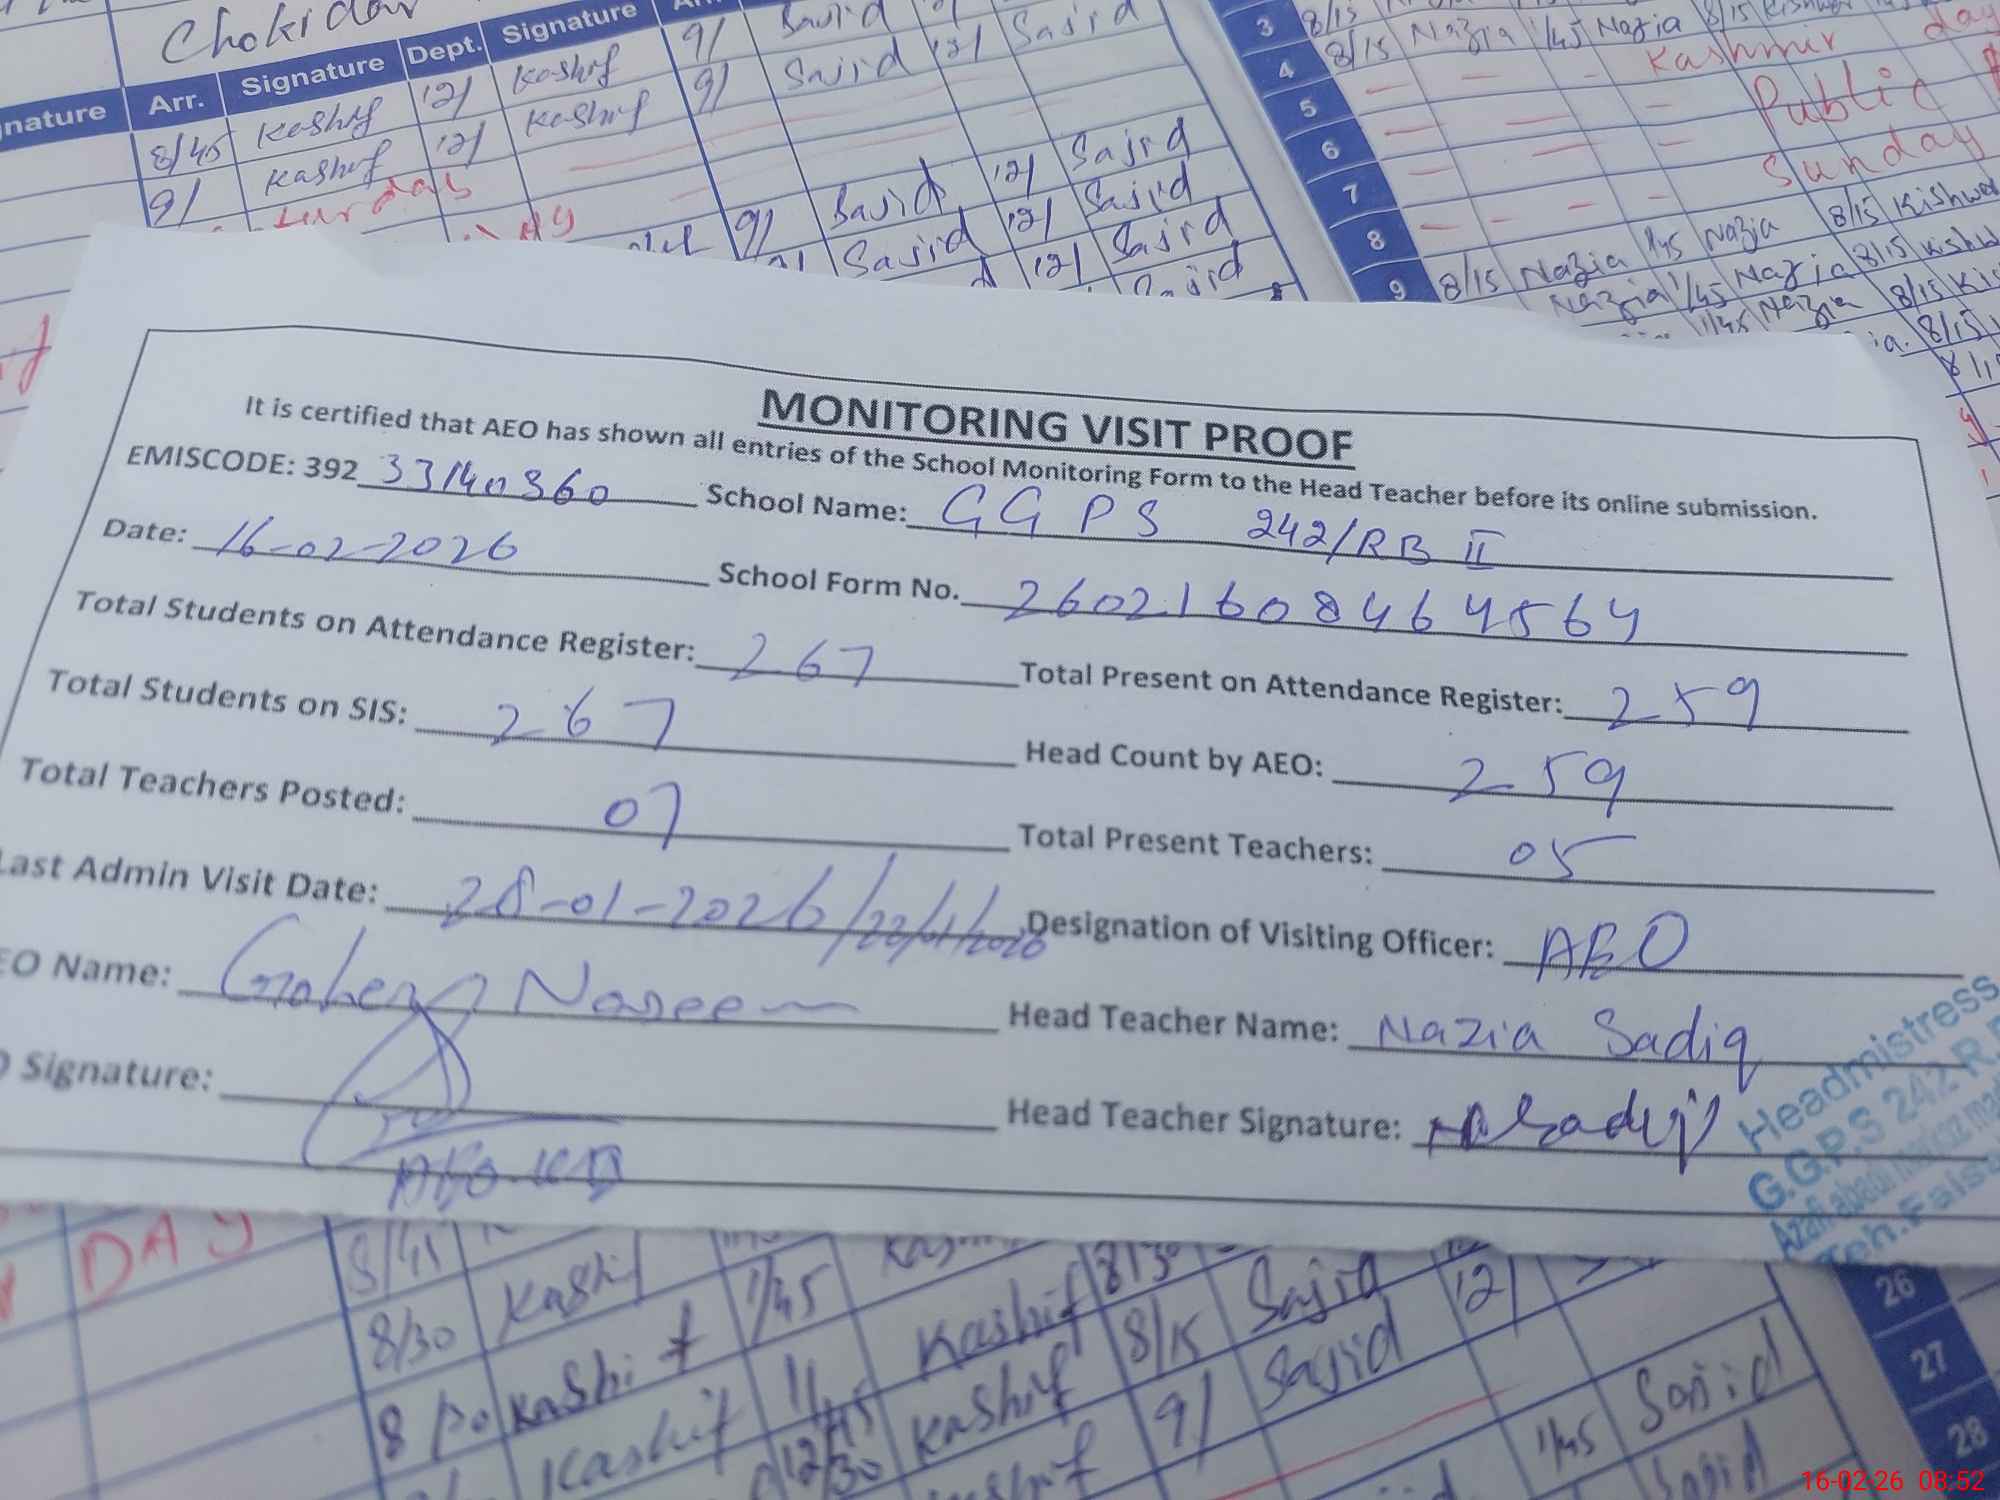 Chokidar
Signature Arr. Signature Dept. Signature
8/45 Kashif 12/ Kashif 9/ Sajid 12/ Sajid
9/ Kashif 12/ Kashif 9/ Sajid 12/ Sajid
9/ Sajid 12/ Sajid
Sajid 12/ Sajid
12/ Sajid
3 8/15
4 8/15 Nazia 1/45 Nazia 8/15 Kishwar
5 Kashmir day
6 Public
7 Sunday
8
9 8/15 Nazia 1/45 Nazia 8/15 Kishwar
Nazia 1/45 Nazia 8/15
1/45 Nazia 8/15
8/15
MONITORING VISIT PROOF
It is certified that AEO has shown all entries of the School Monitoring Form to the Head Teacher before its online submission.
EMISCODE: 392 33140360 School Name: GGPS 242/RB II
Date: 16-02-2026 School Form No. 26021608464564
Total Students on Attendance Register: 267 Total Present on Attendance Register: 259
Total Students on SIS: 267 Head Count by AEO: 259
Total Teachers Posted: 07 Total Present Teachers: 05
Last Admin Visit Date: 28-01-2026/22/01/2026 Designation of Visiting Officer: AEO
EO Name: Naseem Head Teacher Name: Nazia Sadiq
Signature: Head Teacher Signature:
Headmistress
G.G.P.S 242 R.
Teh. Faisa
DAY 8/45
8/30 Kashif 1/45 Kashif 8/30 Sajid 12/
Kashif Kashif 8/15 Sajid
Kashif 12/30 9/
1/45 Sajid
26
27
28
16-02-26 08:52